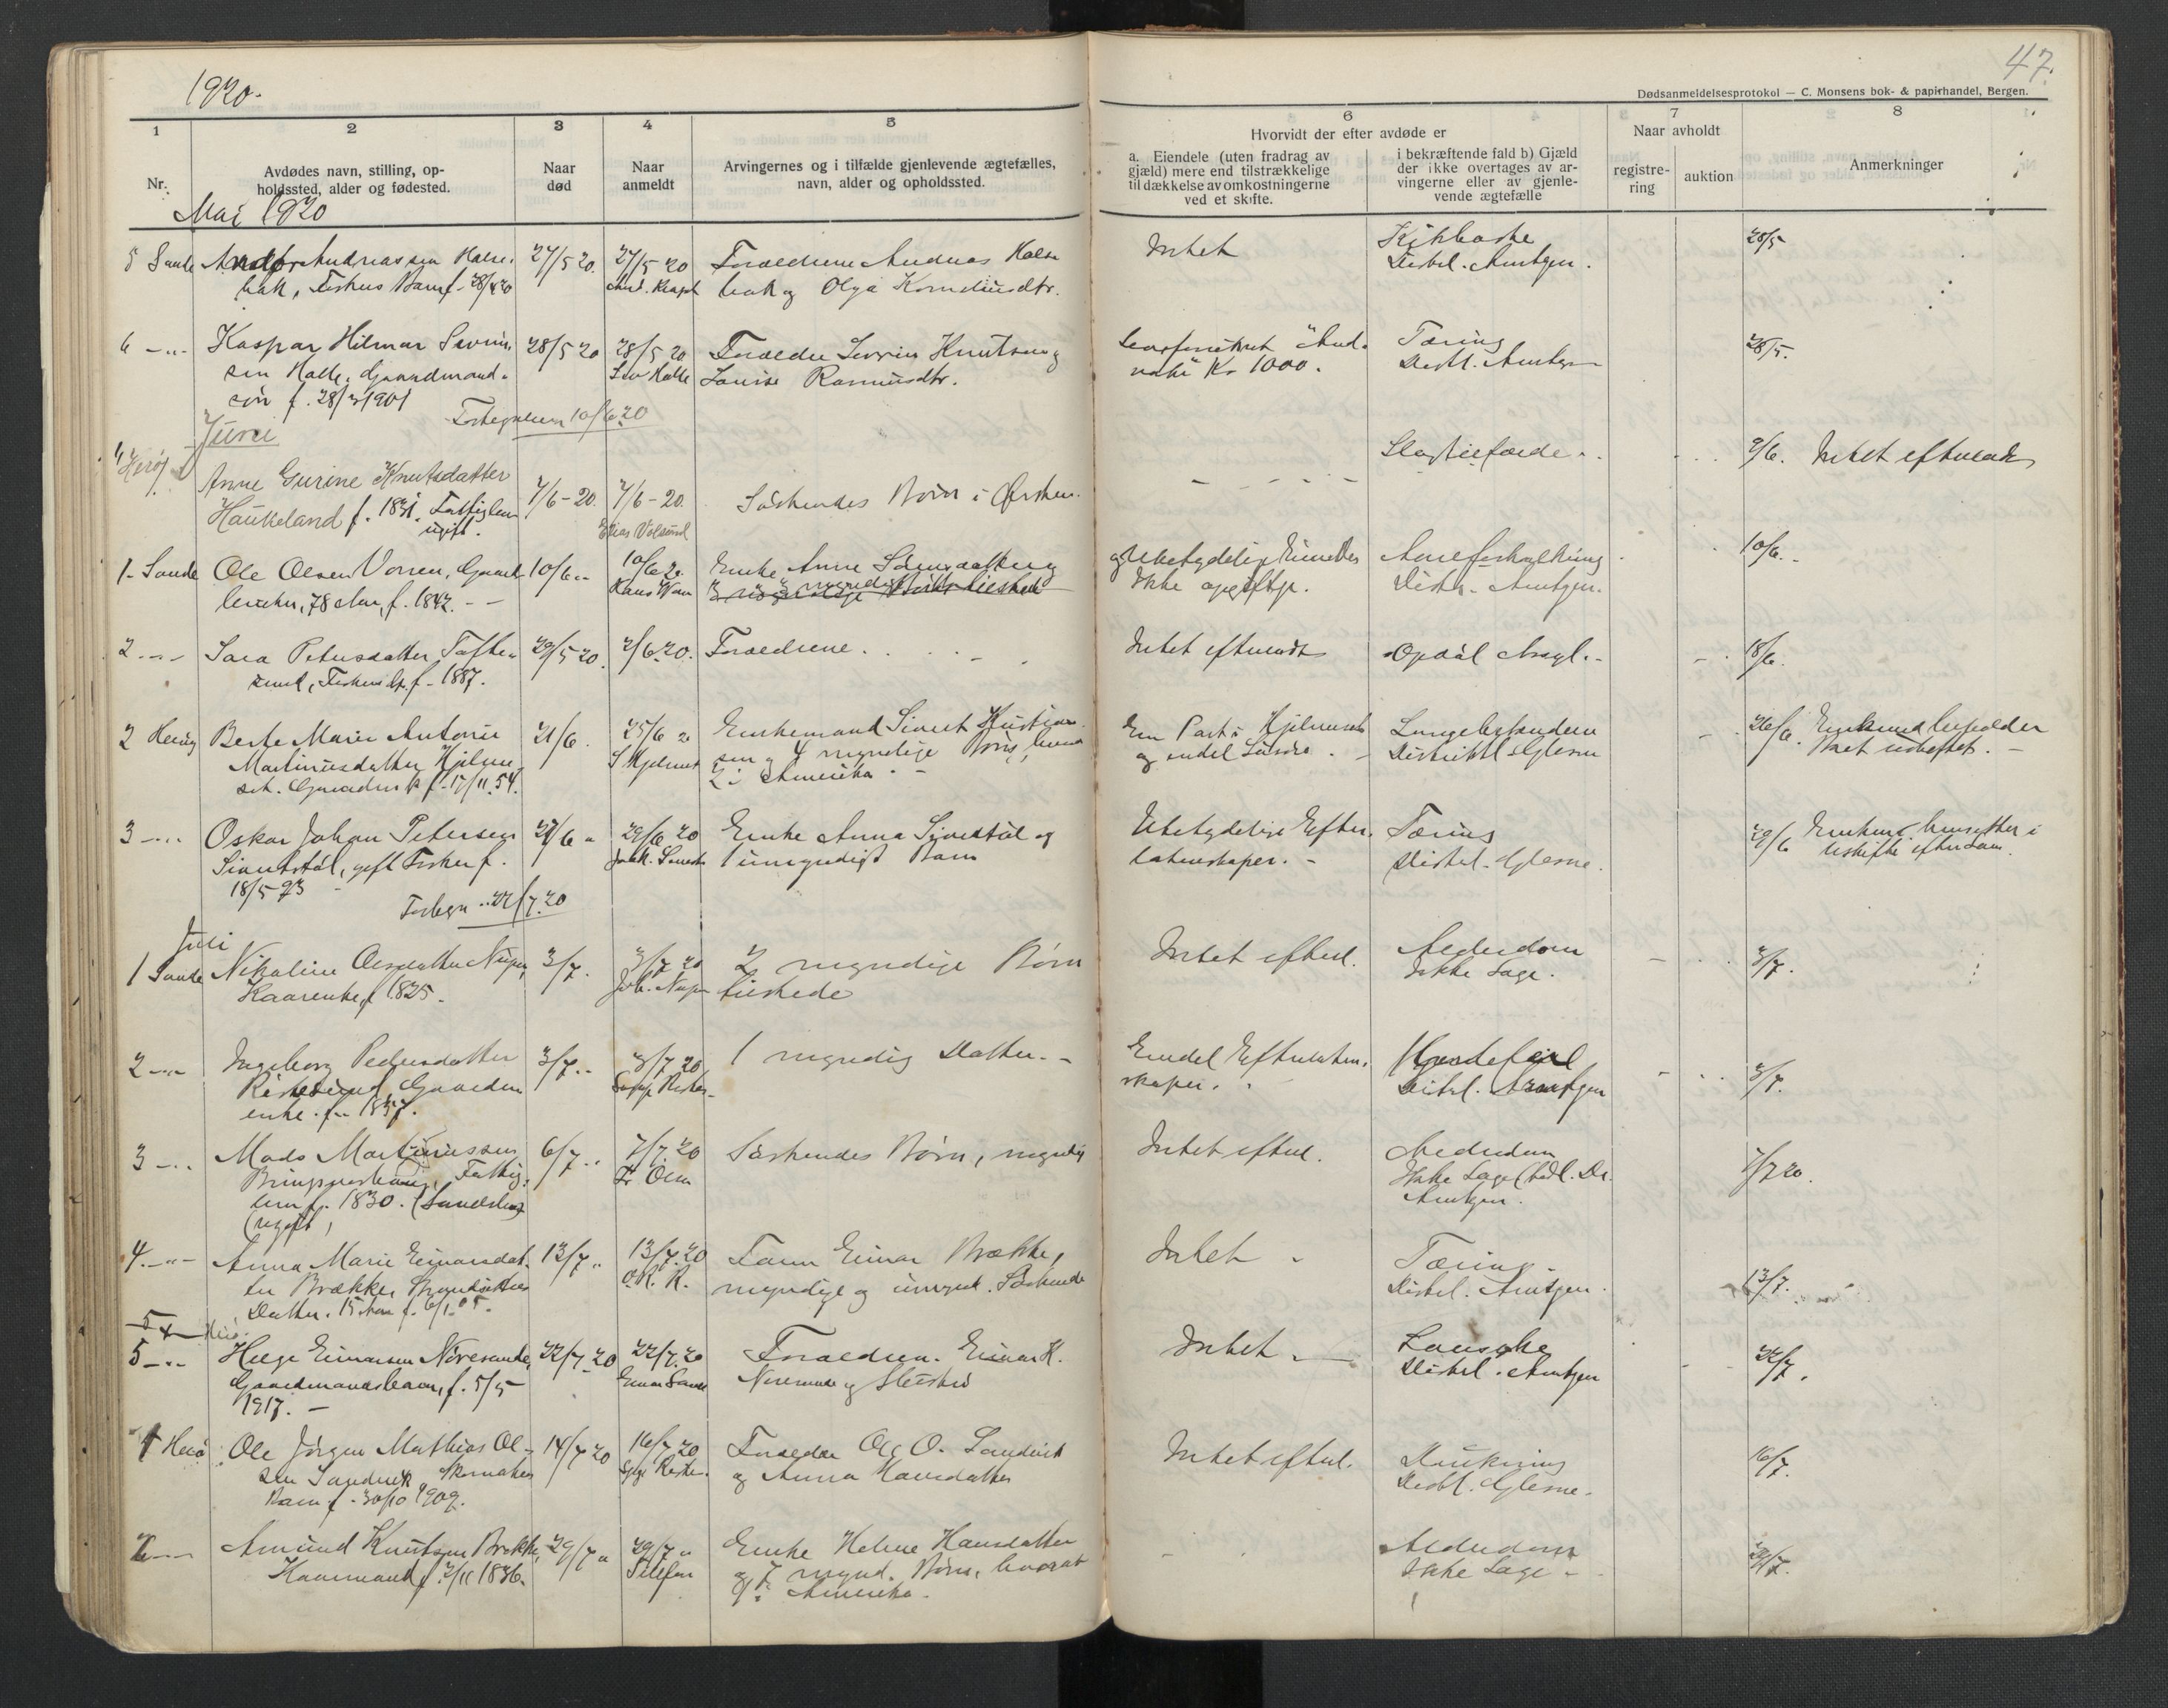 1920.
47.
Dødsanmeldelsesprotokol — C. Monsens bok- & papirhandel, Bergen.
1
2
3
4
5
6
7
8
Nr.
Avdødes navn, stilling, op-
holdssted, alder og fødested.
Naar
død
Naar
anmeldt
Arvingernes og i tilfælde gjenlevende ægtefælles,
navn, alder og opholdssted.
Hvorvidt der efter avdøde er
a. Eiendele (uten fradrag av
gjæld) mere end tilstrækkelige
til dækkelse av omkostningerne
ved et skifte.
i bekræftende fald b) Gjæld
der ikke overtages av ar-
vingerne eller av gjenle-
vende ægtefælle
Naar avholdt
registre-
ring
auktion
Anmerkninger
Mai 1920
5 Sande Andor Andreassen Halse-
bak, Fiskers Barn f. 28/4 20
27/5 20.
27/5 20
Forældrene Andreas Halse
bak og Olga Korneliusdtr.
Intet
Kikhoste
Distrl. Amtgen.
28/5
6 -"- Kaspar Hilmar Severin-
sen Halle. Gaardmands-
søn f. 28/3 1901
28/5 20
28/5 20
Sev Halle
Forældre Severin Knutsen og
Lovise Rasmusdtr.
Kr 1000.
Tæring
Distrl. Amtgen
28/5.
Fortegnelsen 10/6 20
Juni
1 Herøy
Anne Gurine Knutsdatter
Haukeland f. 1831. Fattiglem
ugift.
7/6 - 20.
7/6 - 20.
Elias Volsund
Søskendes Børn i Ørsten.
Slagtilfælde.
9/6. Intet efterladt
1 - Sande Ole Olsen Vorren, Gaard-
bruker, 78 Aar, f. 1842. - -
10/6 "
10/6 20
Hans Vorren
Enke Anne
og
Ubetydelige Eiendeler
Ikke opgift.
Aareforkalkning
Distr. Amtgen.
10/6. -
2 -"- Sara Petersdatter Tafte-
sund, Fiskers f. 1887.
29/5 20.
2/6 20.
Forældrene.
Intet efterladt
Opdøl Asyl. -
18/6.
2 Herøy Berte Marie Antonie
Martinusdatter Hjelme-
set. Gaardmk f. 17/11.54.
21/6.
25/6 20
S Hjelmeset
Enkemand Sivert Kristian-
sen og 4 myndige Børn, hvorav
2 i Amerika. -
En Part i Hjelmeset
og endel Løsøre. -
Lungebetændelse
Distriktl. Glerne
26/6. Enkemand beholder
Boet uskiftet. -
3 -"- Oskar Johan Petersen
Sivertstøl, gift Fisker f.
18/5 93 -
27/6 "
29/6 20
Enke Anna Sivertstøl og
1 umyndigt Barn
Ubetydelige Efter-
latenskaper. -
Tæring
Distrl. Glerne.
29/6 Enken hensitter i
uskifte efter Lov.
Fortegn 22/7.20
Juli
1 Sande Nikoline Olesdatter Nupen,
Kaarenke f 1825.
3/7.
3/7 20
Joh. Nupen
2 myndige Børn
tilstede
Intet efterl.
Alderdom
Ikke Læge.
3/7.
2 -"- Ingeborg Pedersdatter
Gaardm
enke. f. 1837.
3/7. -
3/7 20
1 myndig Datter. -
Endel Efterlaten-
skaper.
Hjertefeil
Distrl. Amtgen
3/7.
3 -"- Mads Martinussen
Bringsinghaug, Fattig-
lem f. 1830. (Sandshav)
(ugift)
6/7 ..
7/7.20
Fr Olsen
Søskendes Børn, myndig
Intet efterl.
Alderdom
Ikke Læge (
Amtgen.
7/7 20.
4. -"- Anna Marie Einarsdat-
ter Brække,
Datter. 15 Aar f. 6/1. 05.
13/7 "
13/7.20
O. R. R.
Farm Einar Brække,
myndige og umynd. Søskende
Intet -
Tæring.
Distrl. Amtgen.
13/7.
5 -"- Helge Einarsen Nøresande
Gaardmandsbarn, f. 5/5
1917. -
22/7 20
22/7.20
Einar Sande
Forældren. Einar K.
Nøresande og Hustru
Intet -
Distrl. Amtgen
22/7.
1 Herø Ole Jørgen Mathias Ol-
sen Sandvik Skomakers
Barn f. 30/10 1909.
14/7 20
16/7 20
Forældre Ole O. Sandvik
og Anna Hansdatter
Intet efterl.
Drukning
Distrl. Glerne.
16/7.
2 -"- Amund Knutsen Brække,
Kaarmand f. 2/11 1836.
29/7 "
29/7 "
Telefon
Enke Helene Hansdatter
og 7 mynd. Børn, hvorav
i Amerika.
Alderdom
Ikke Læge -
29/7.